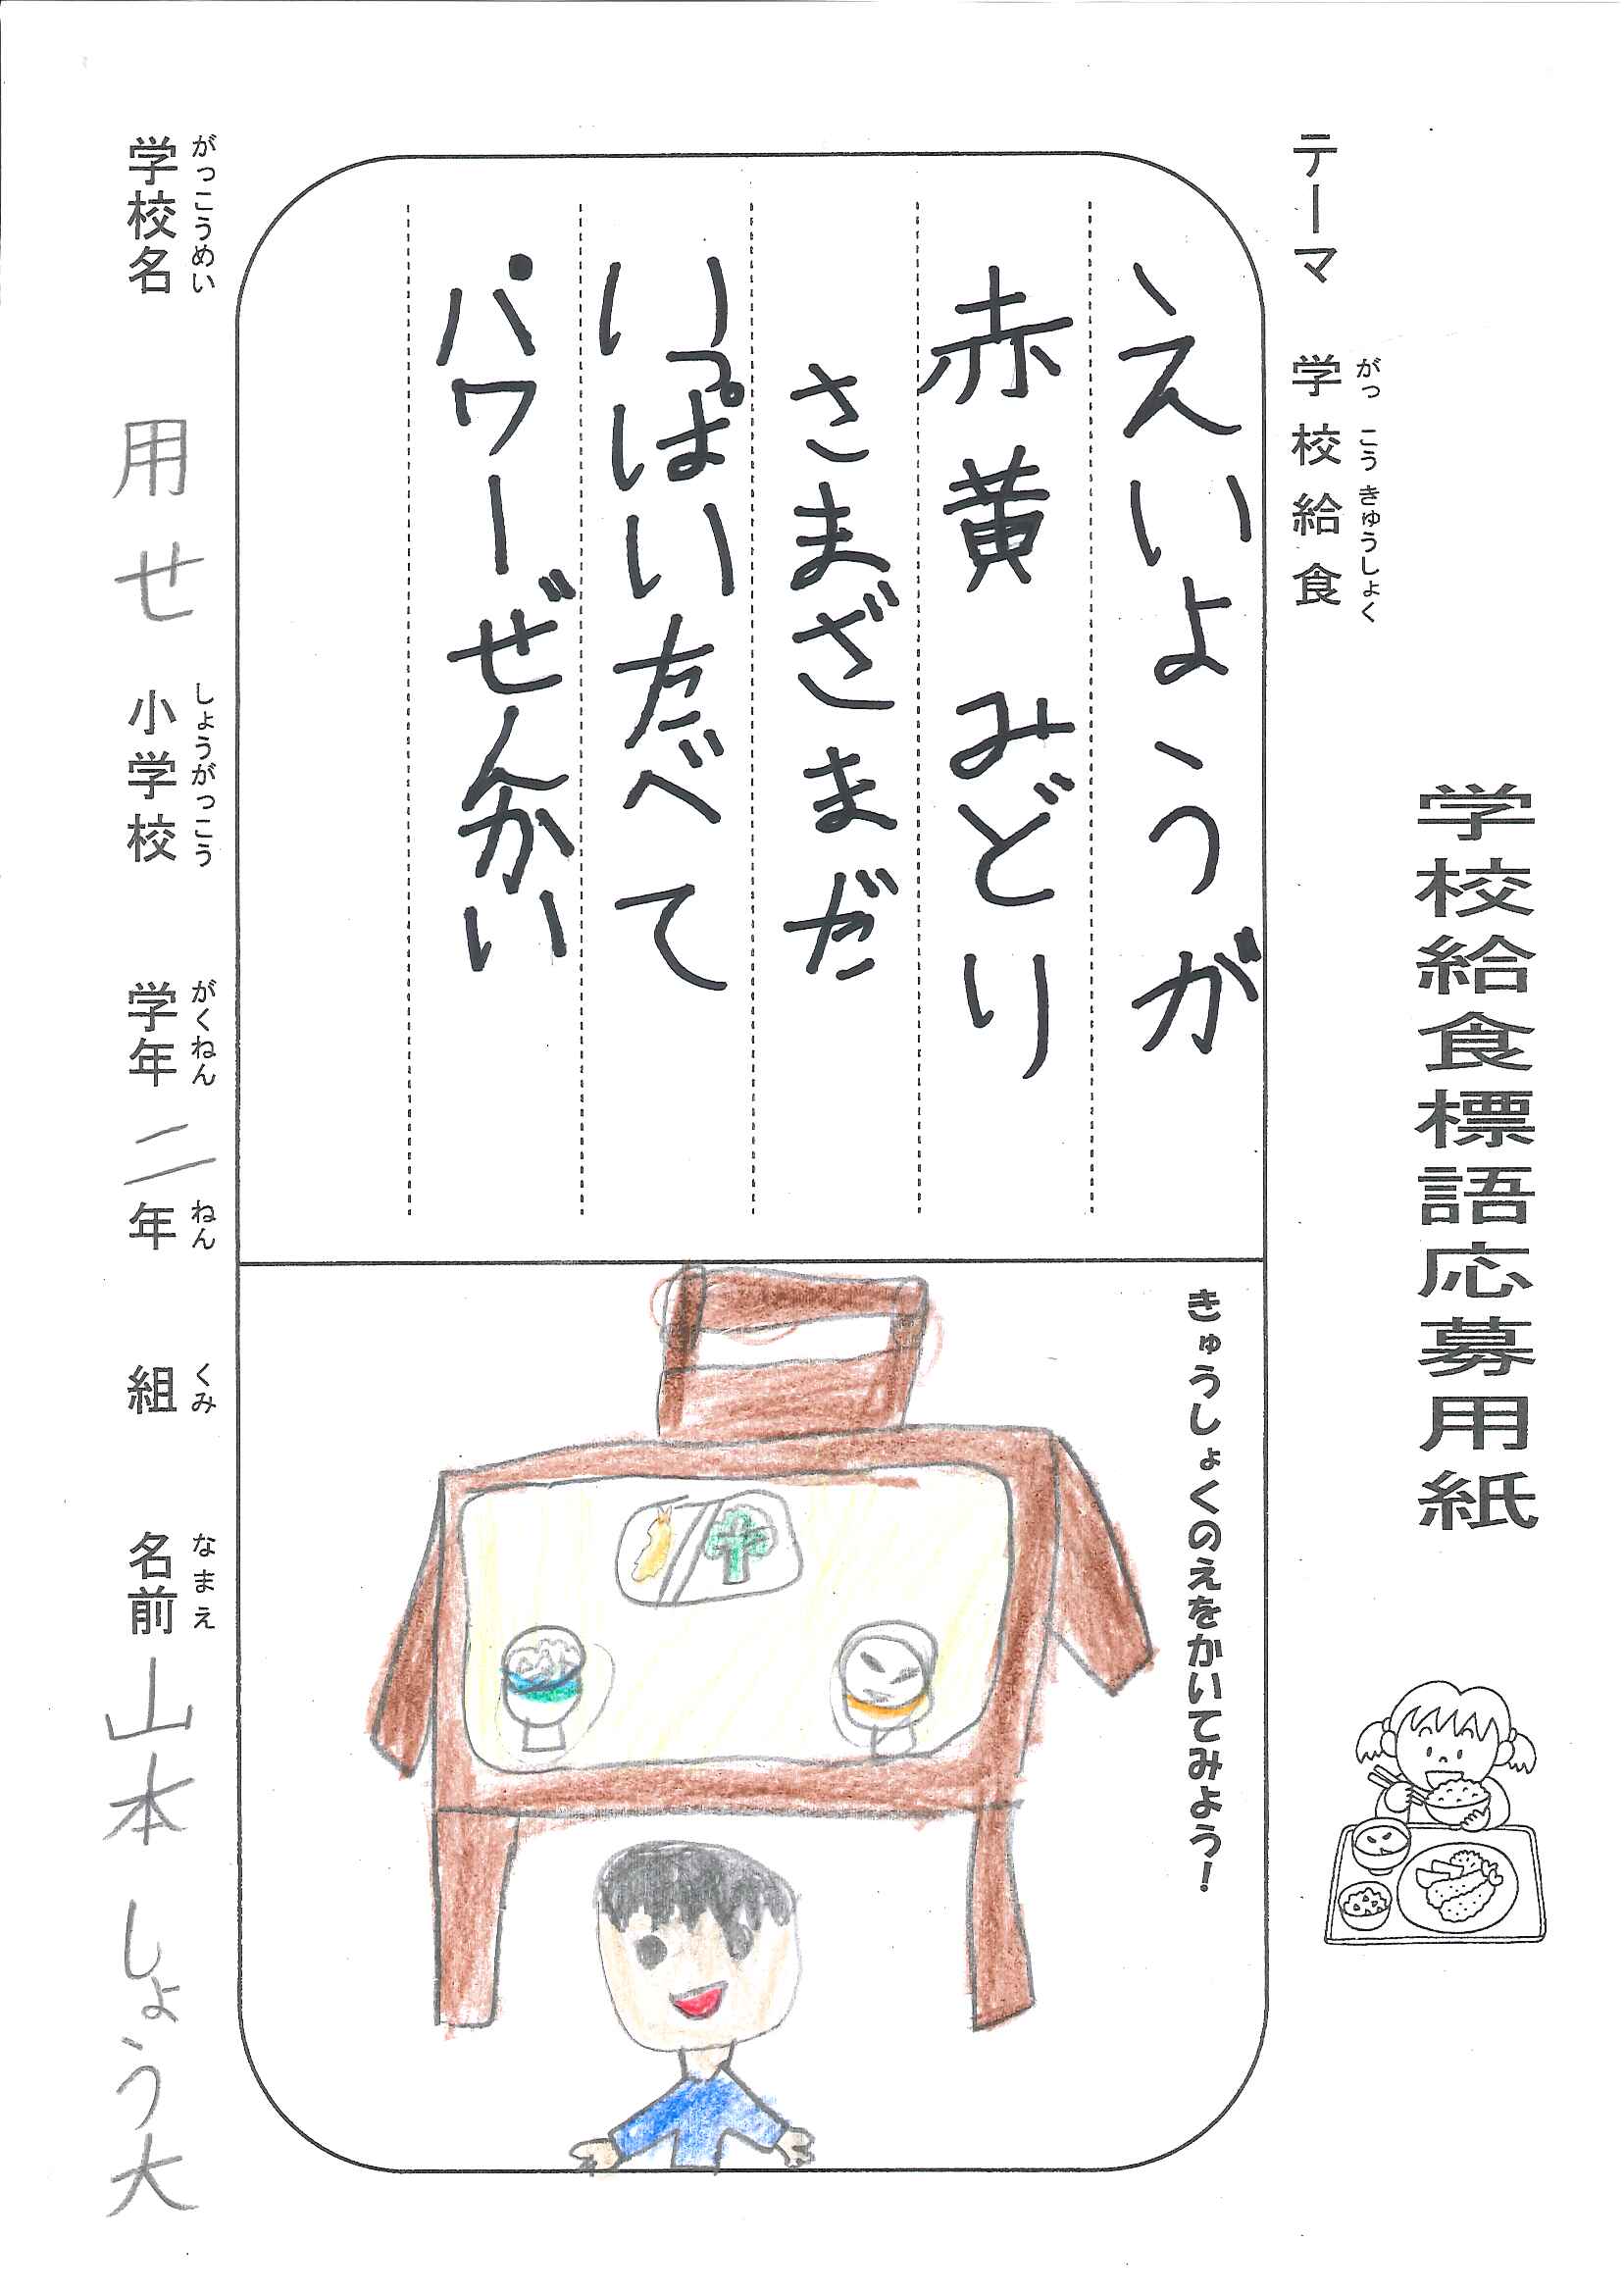 学校給食標語応募用紙
テーマ 学校給食
がっこうきゅうしょく
えいようが
赤黄みどり
さまざまだ
いっぱいたべて
パワーぜんかい
きゅうしょくのえをかいてみよう!
がっこうめい しょうがっこう がくねん ねん くみ なまえ
学校名 用せ 小学校 学年 二年 組 名前 山本しょう大